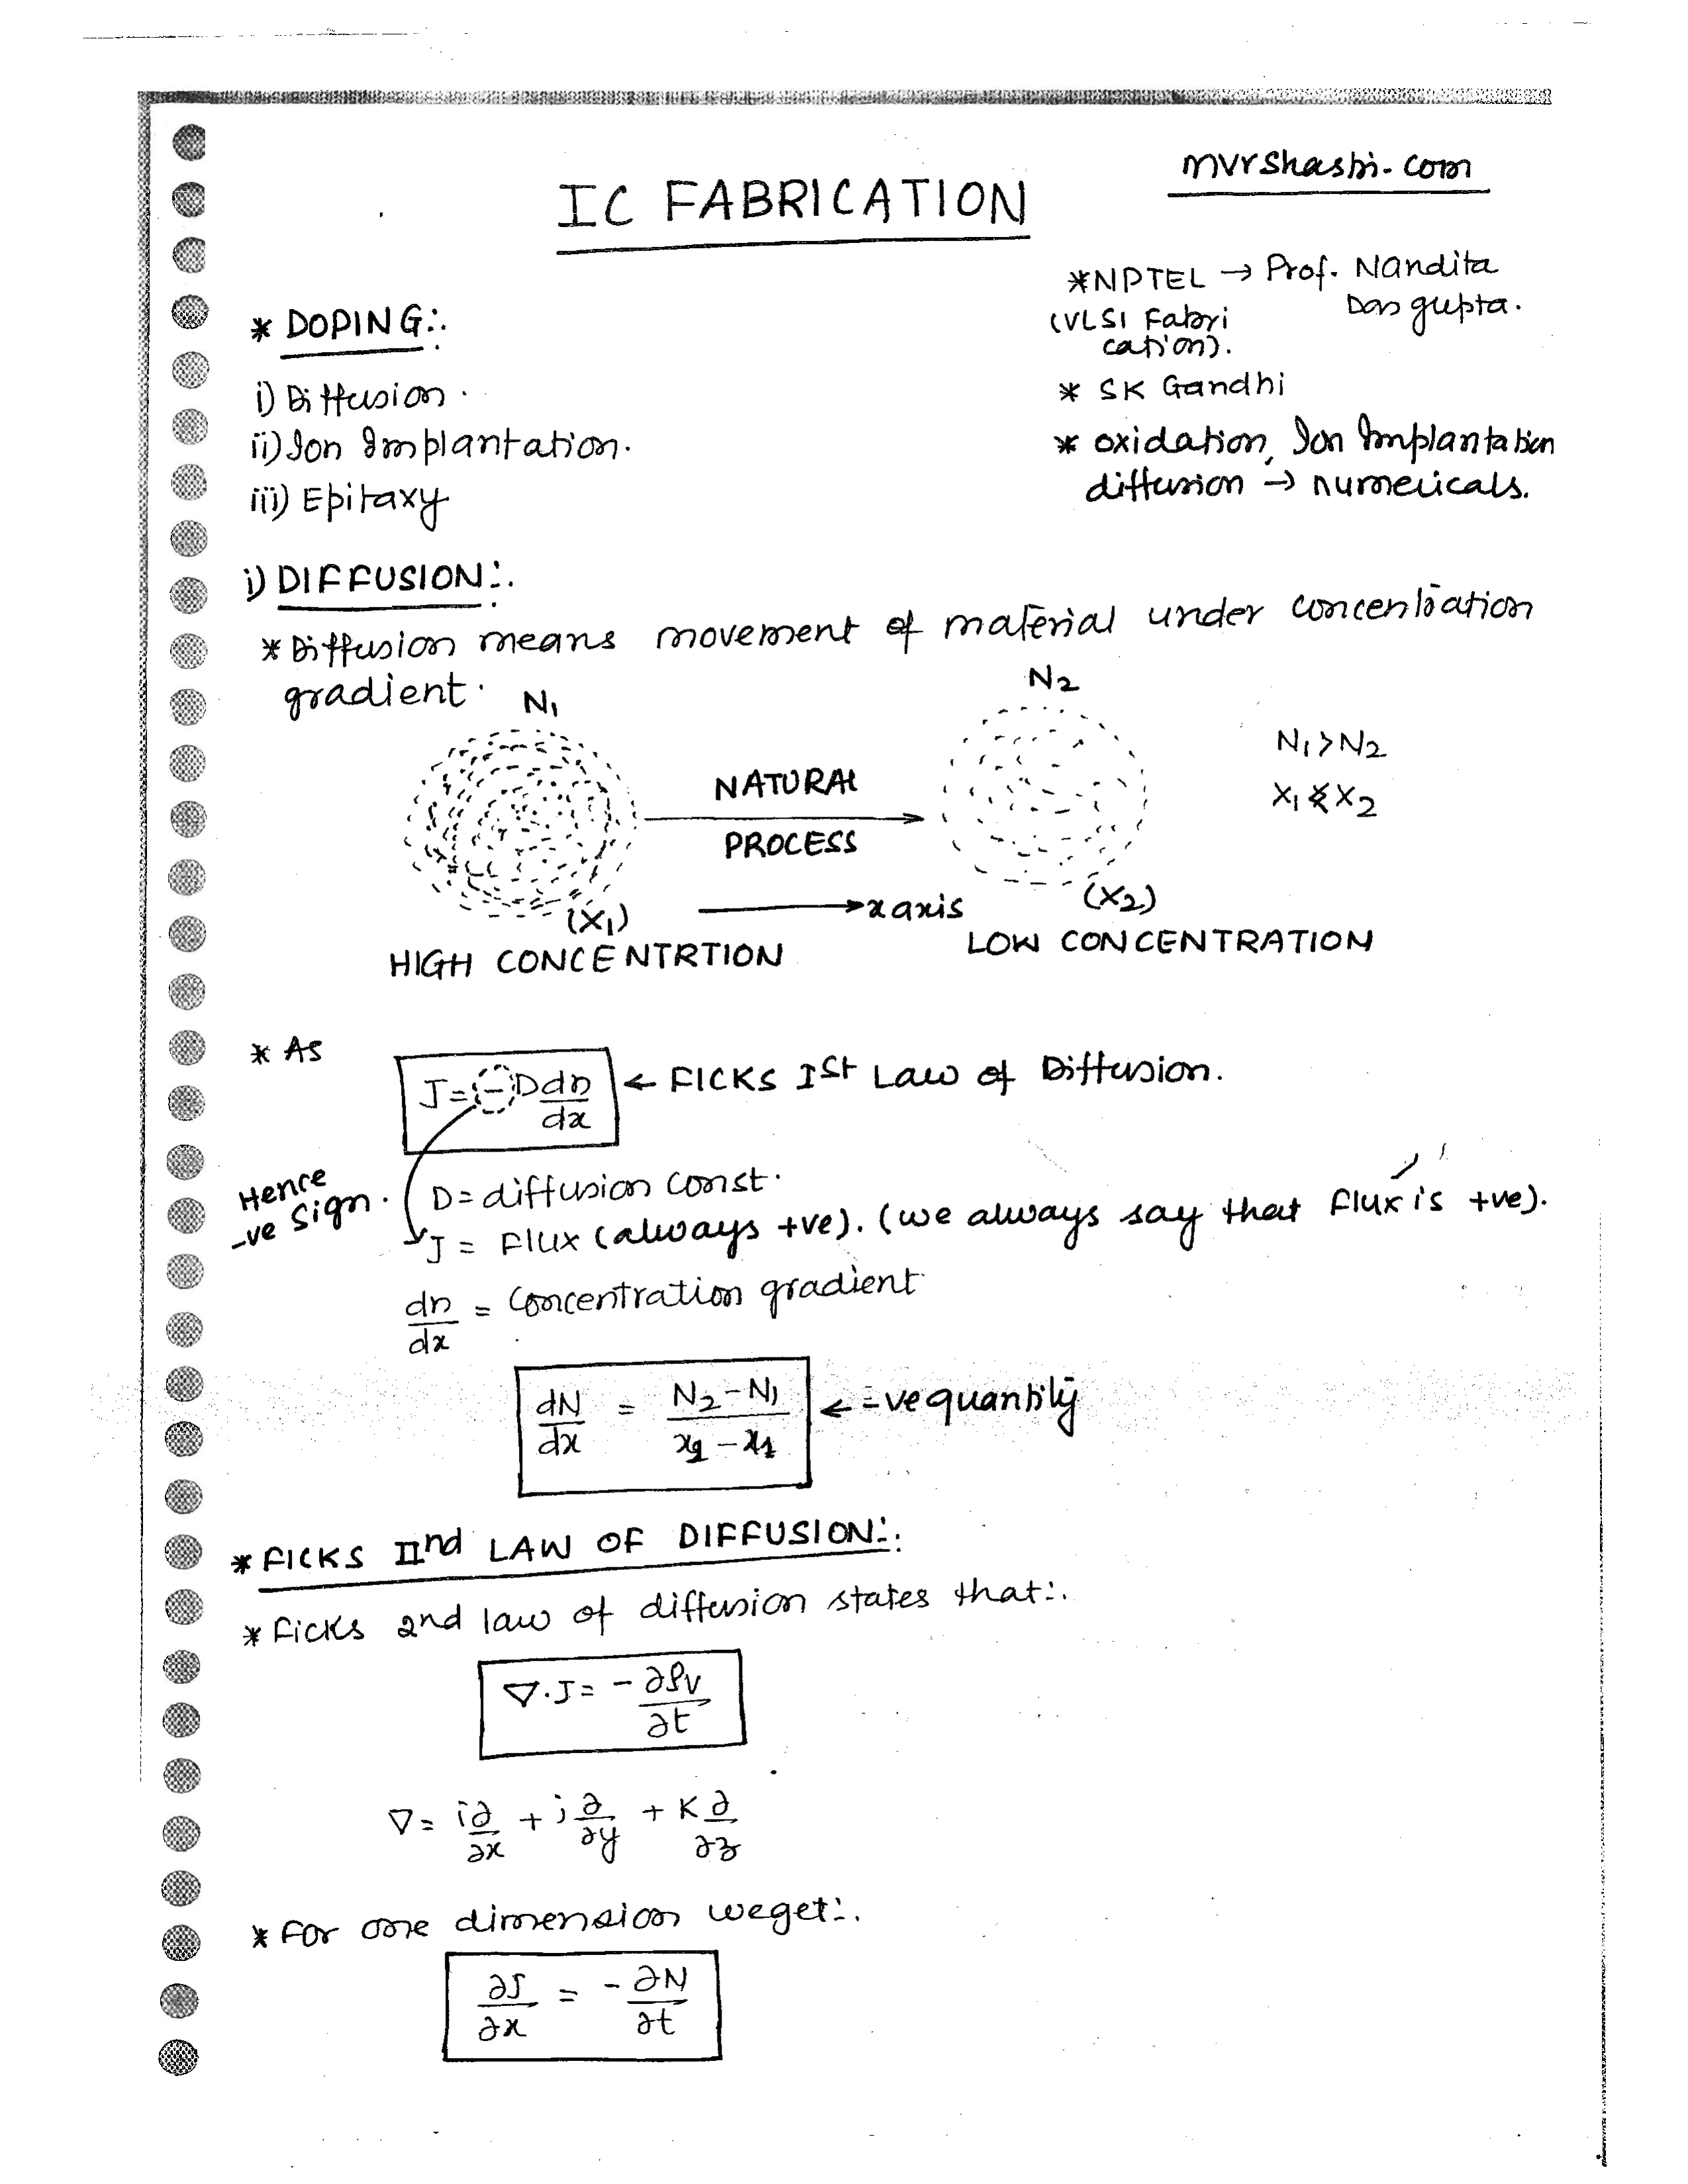 mvrshashi.com
IC FABRICATION
*NPTEL → Prof. Nandita
Das gupta.
(VLSI Fabri
cation).
* SK Gandhi
* oxidation, Ion Implantation
diffusion → numericals.
* DOPING:.
i) Diffusion.
ii) Ion Implantation.
iii) Epitaxy
i) DIFFUSION:.
* Diffusion means movement of material under concentration
gradient.
N₁
N₂
N₁>N₂
NATURAL
PROCESS
(X₁)
→x axis
(X₂)
HIGH CONCENTRTION
LOW CONCENTRATION
* As
J = - D dn/dx ← FICKS Ist Law of Diffusion.
Hence
-ve sign.
D = diffusion const.
J = Flux (always +ve). (we always say that flux is +ve).
dn/dx = Concentration gradient
dN/dx = N₂-N₁/x₂-x₁ ← -ve quantity
* FICKS IInd LAW OF DIFFUSION:.
* Ficks 2nd law of diffusion states that:.
∇.J = - ∂ρv/∂t
∇ = i∂/∂x + j∂/∂y + K∂/∂z
* For one dimension we get:.
∂J/∂x = - ∂N/∂t